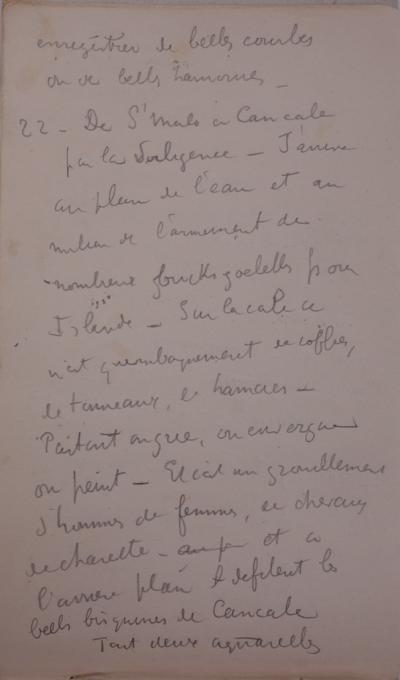 enregistrer de belles courbes
ou de belles harmonies _
22 - De St Malo à Cancale
par la Diligence - J'arrive
au plein de l'eau et au
milieu de l'armement de
nombreux goelettes pour
Islande - Sur la cale ce
n'est qu'embarquement de coffres,
de tonneaux, de hamacs -
Partout on gree, on envergue
on peint - Et c'est un grouillement
d'hommes de femmes, de chevaux
de charette - et à
l'arriere plan defilent les
belles bisquines de Cancale
Tout deux aquarelles